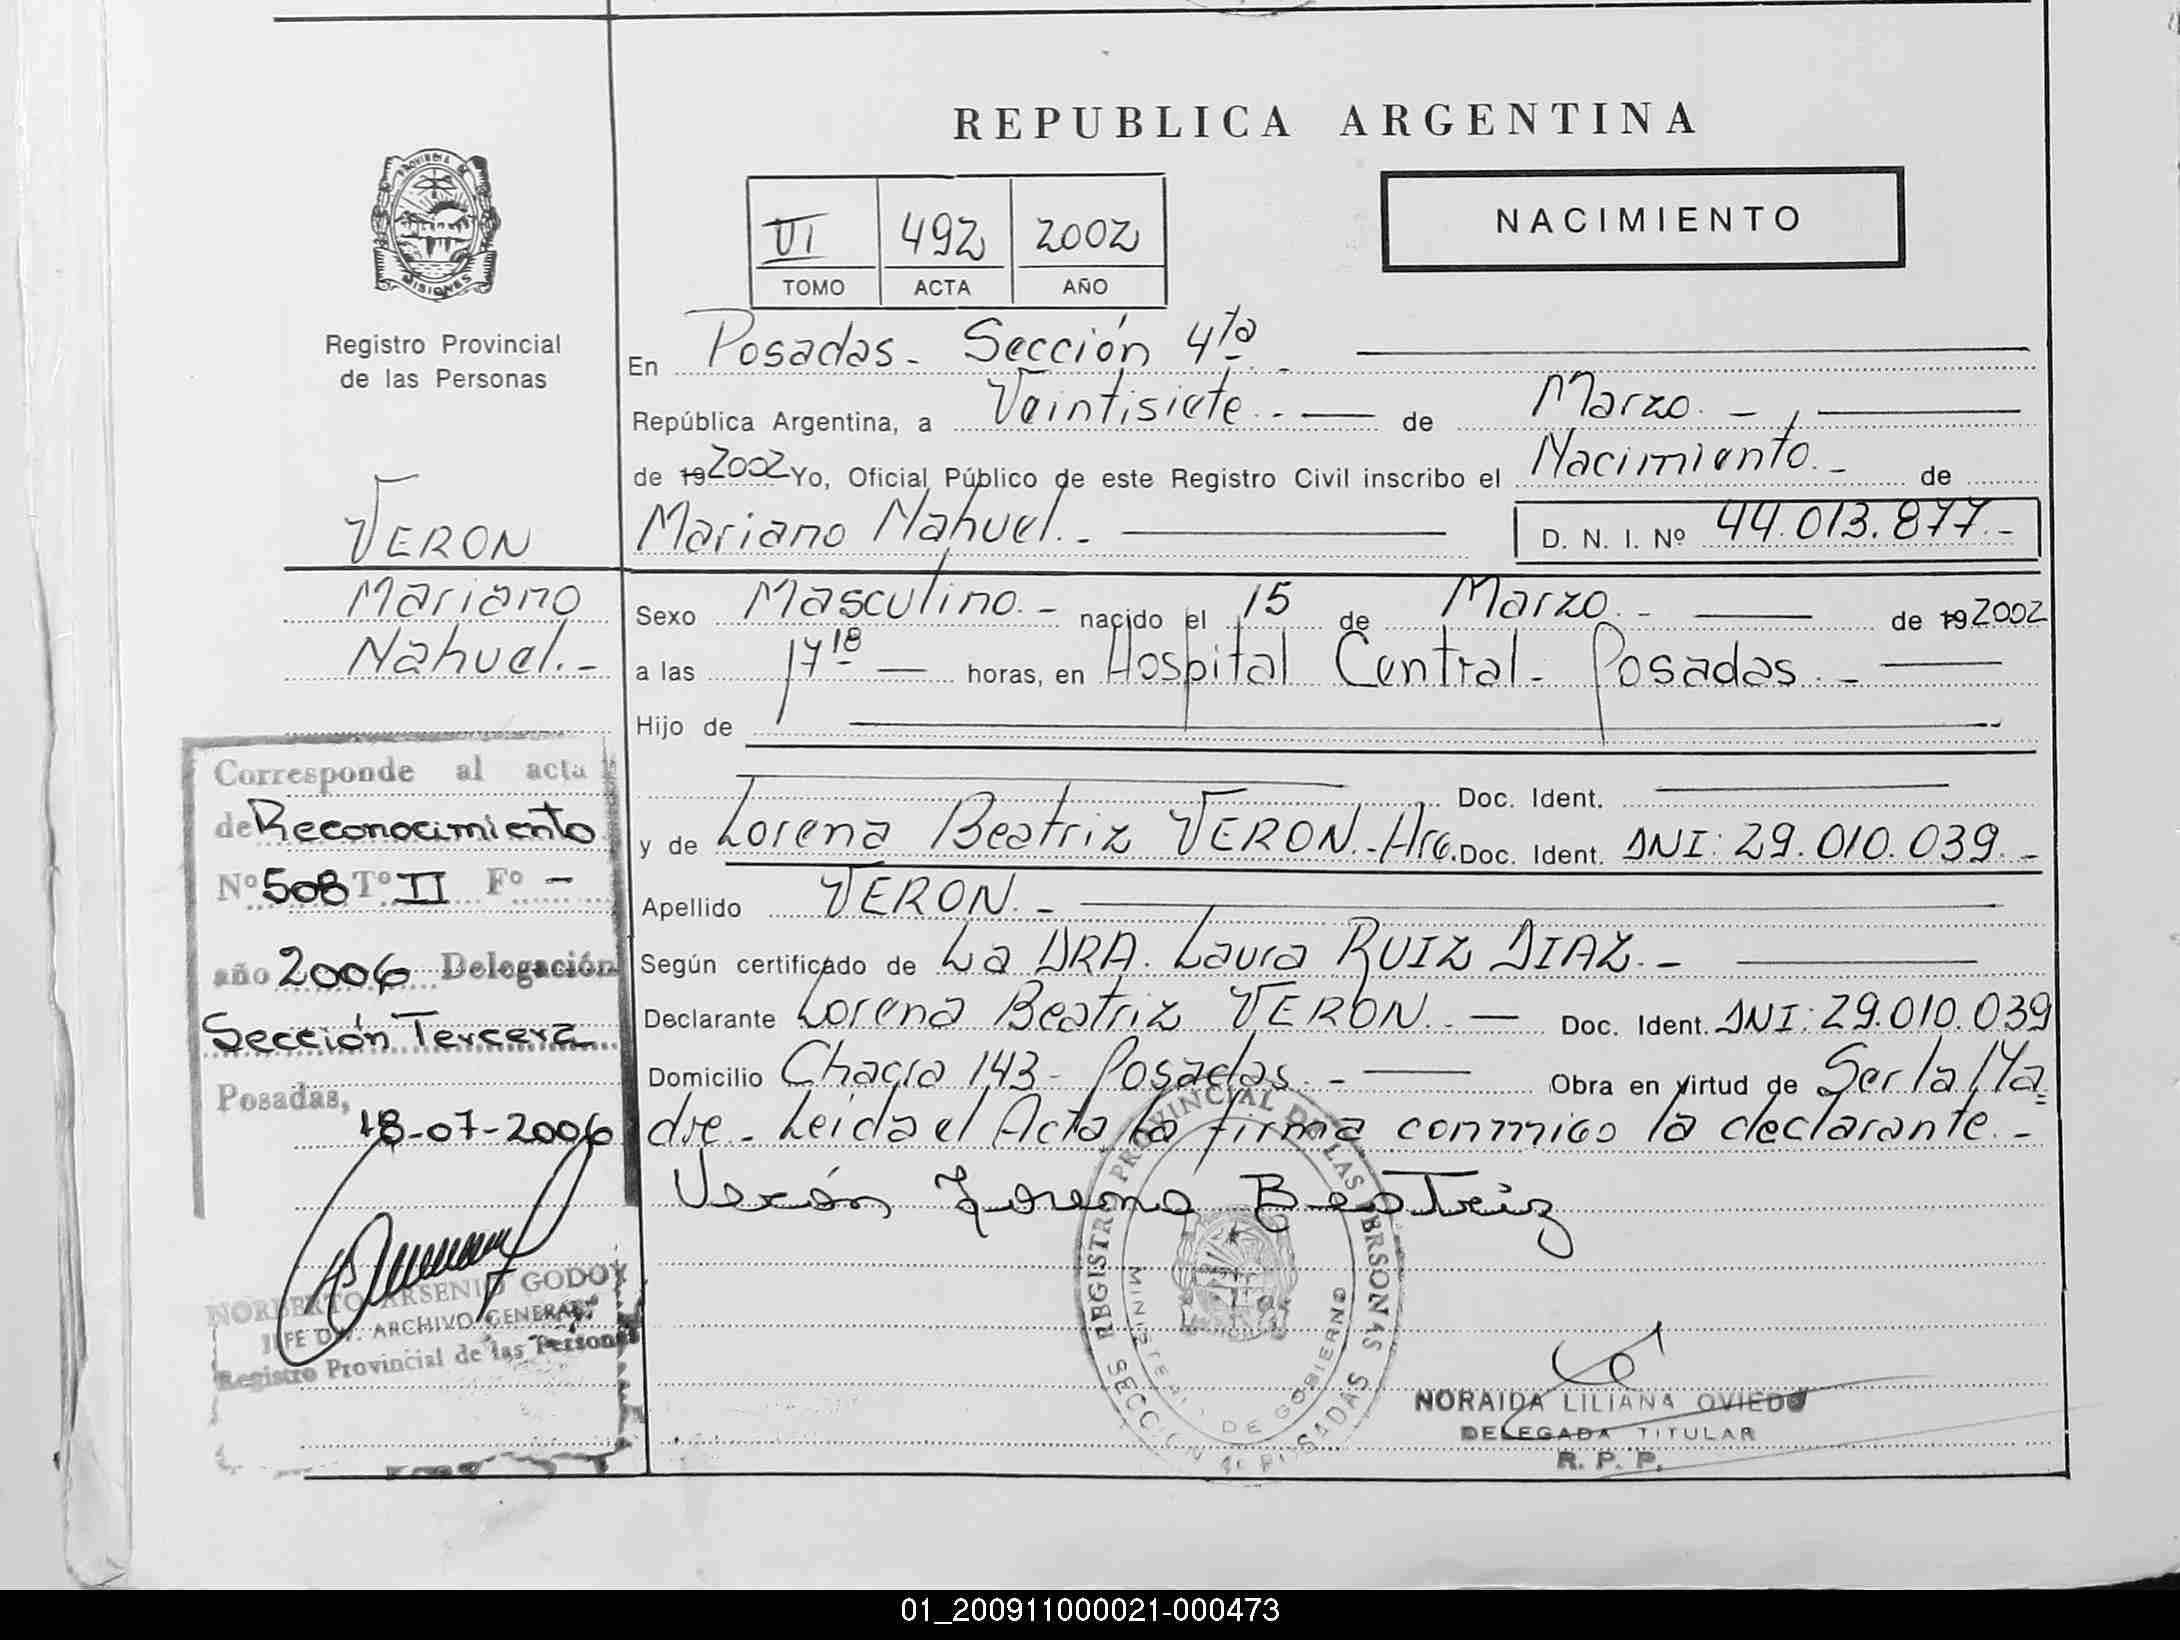 REPUBLICA ARGENTINA
PROVINCIA
MISIONES
Registro Provincial
de las Personas
VI 492 2002
TOMO ACTA AÑO
NACIMIENTO
En Posadas.- Sección 4ta.-
República Argentina, a Veintisiete.- de Marzo.-
de 19 2002 Yo, Oficial Público de este Registro Civil inscribo el Nacimiento.- de
Mariano Nahuel.- D. N. I. Nº 44.013.877.-
VERON
Mariano
Nahuel.-
Sexo Masculino.- nacido el 15 de Marzo.- de 19 2002
a las 17 18 horas, en Hospital Central- Posadas.-
Hijo de
Doc. Ident.
y de Lorena Beatriz VERON.-Arg. Doc. Ident. DNI: 29.010.039.-
Apellido VERON.-
Según certificado de La DRA. Laura RUIZ DIAZ.-
Declarante Lorena Beatriz VERON.- Doc. Ident. DNI: 29.010.039
Domicilio Chacra 143- Posadas.- Obra en virtud de Ser la Ma=
dre.- Leida el Acta la firma conmigo la declarante.-
Verón Lorena Beatriz
Corresponde al acta
de Reconocimiento
Nº 508 Tº II Fº -
año 2006 Delegación
Sección Tercera
Posadas,
18-07-2006
NORBERTO ARSENIO GODOY
JEFE DIV. ARCHIVO GENERAL
Registro Provincial de las Personas
REGISTRO PROVINCIAL DE LAS PERSONAS
MINISTERIO DE GOBIERNO
SECCION 4º POSADAS
NORAIDA LILIANA OVIEDO
DELEGADA TITULAR
R. P. P.
01_200911000021-000473